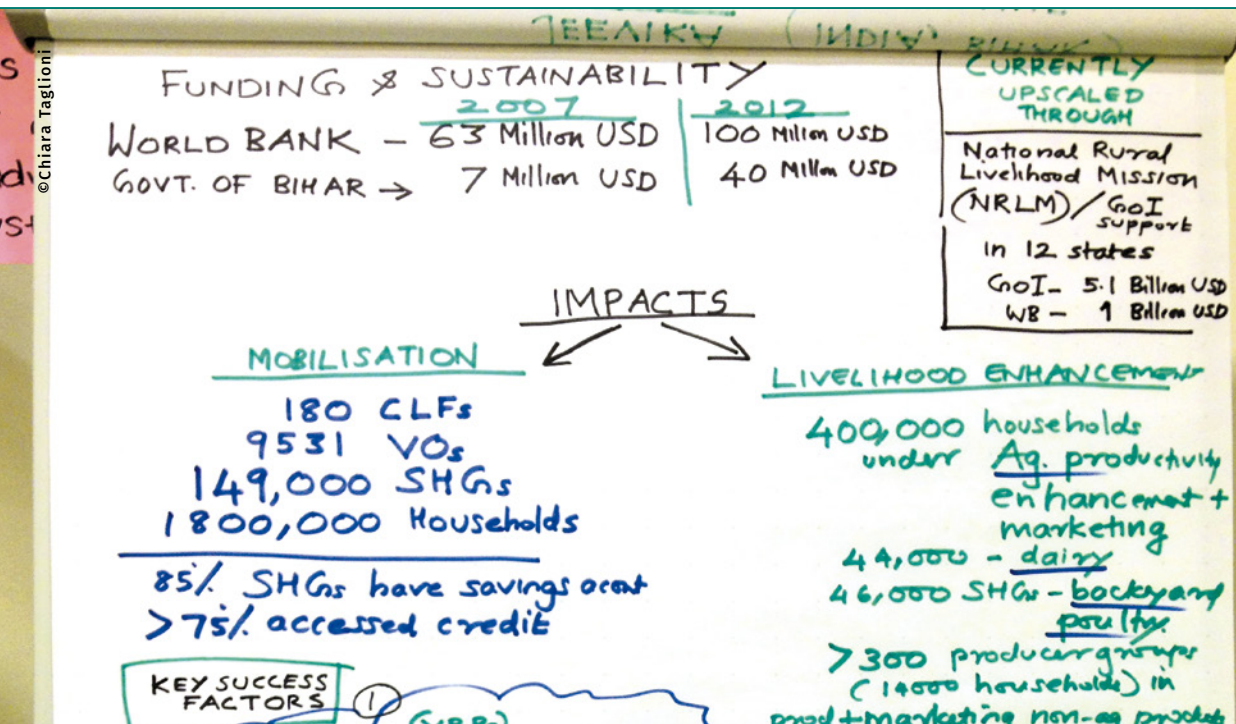 JEEVIKA (INDIA, BIHAR)
©Chiara Taglioni
FUNDING & SUSTAINABILITY
2007 2012
WORLD BANK – 63 Million USD 100 Million USD
GOVT. OF BIHAR → 7 Million USD 40 Million USD
CURRENTLY
UPSCALED
THROUGH
National Rural
Livelihood Mission
(NRLM)/GoI
support
in 12 states
GoI – 5.1 Billion USD
WB – 1 Billion USD
IMPACTS
MOBILISATION
180 CLFs
9531 VOs
149,000 SHGs
1800,000 Households
85% SHGs have savings acont
>75% accessed credit
LIVELIHOOD ENHANCEMENT
400,000 households
under Ag. productivity
enhancement +
marketing
44,000 – dairy
46,000 SHGs – backyard
poultry.
>300 producer groups
(14000 households) in
prod + marketing non-ag products
KEY SUCCESS
FACTORS
1